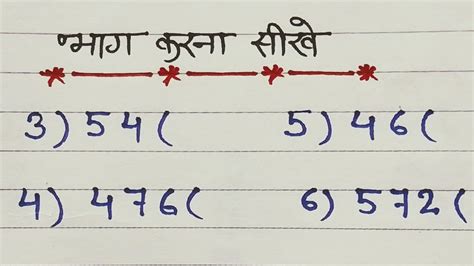 भाग करना सीखे
3) 54( 5) 46(
4) 476( 6) 572(